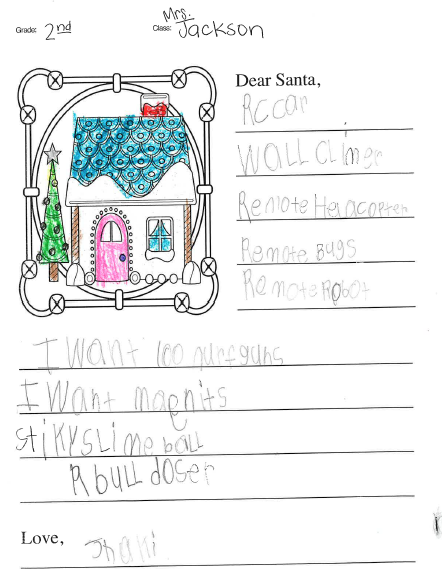 Grade: 2nd
Class: Mrs. Jackson
Dear Santa,
RC car
WALL CLimer
Remote Helacopter
Remote BUGS
Remote Robot
I Want 100 nurfguns
I Want magnits
stiKy sLime baLL
R buLL doser
Love,